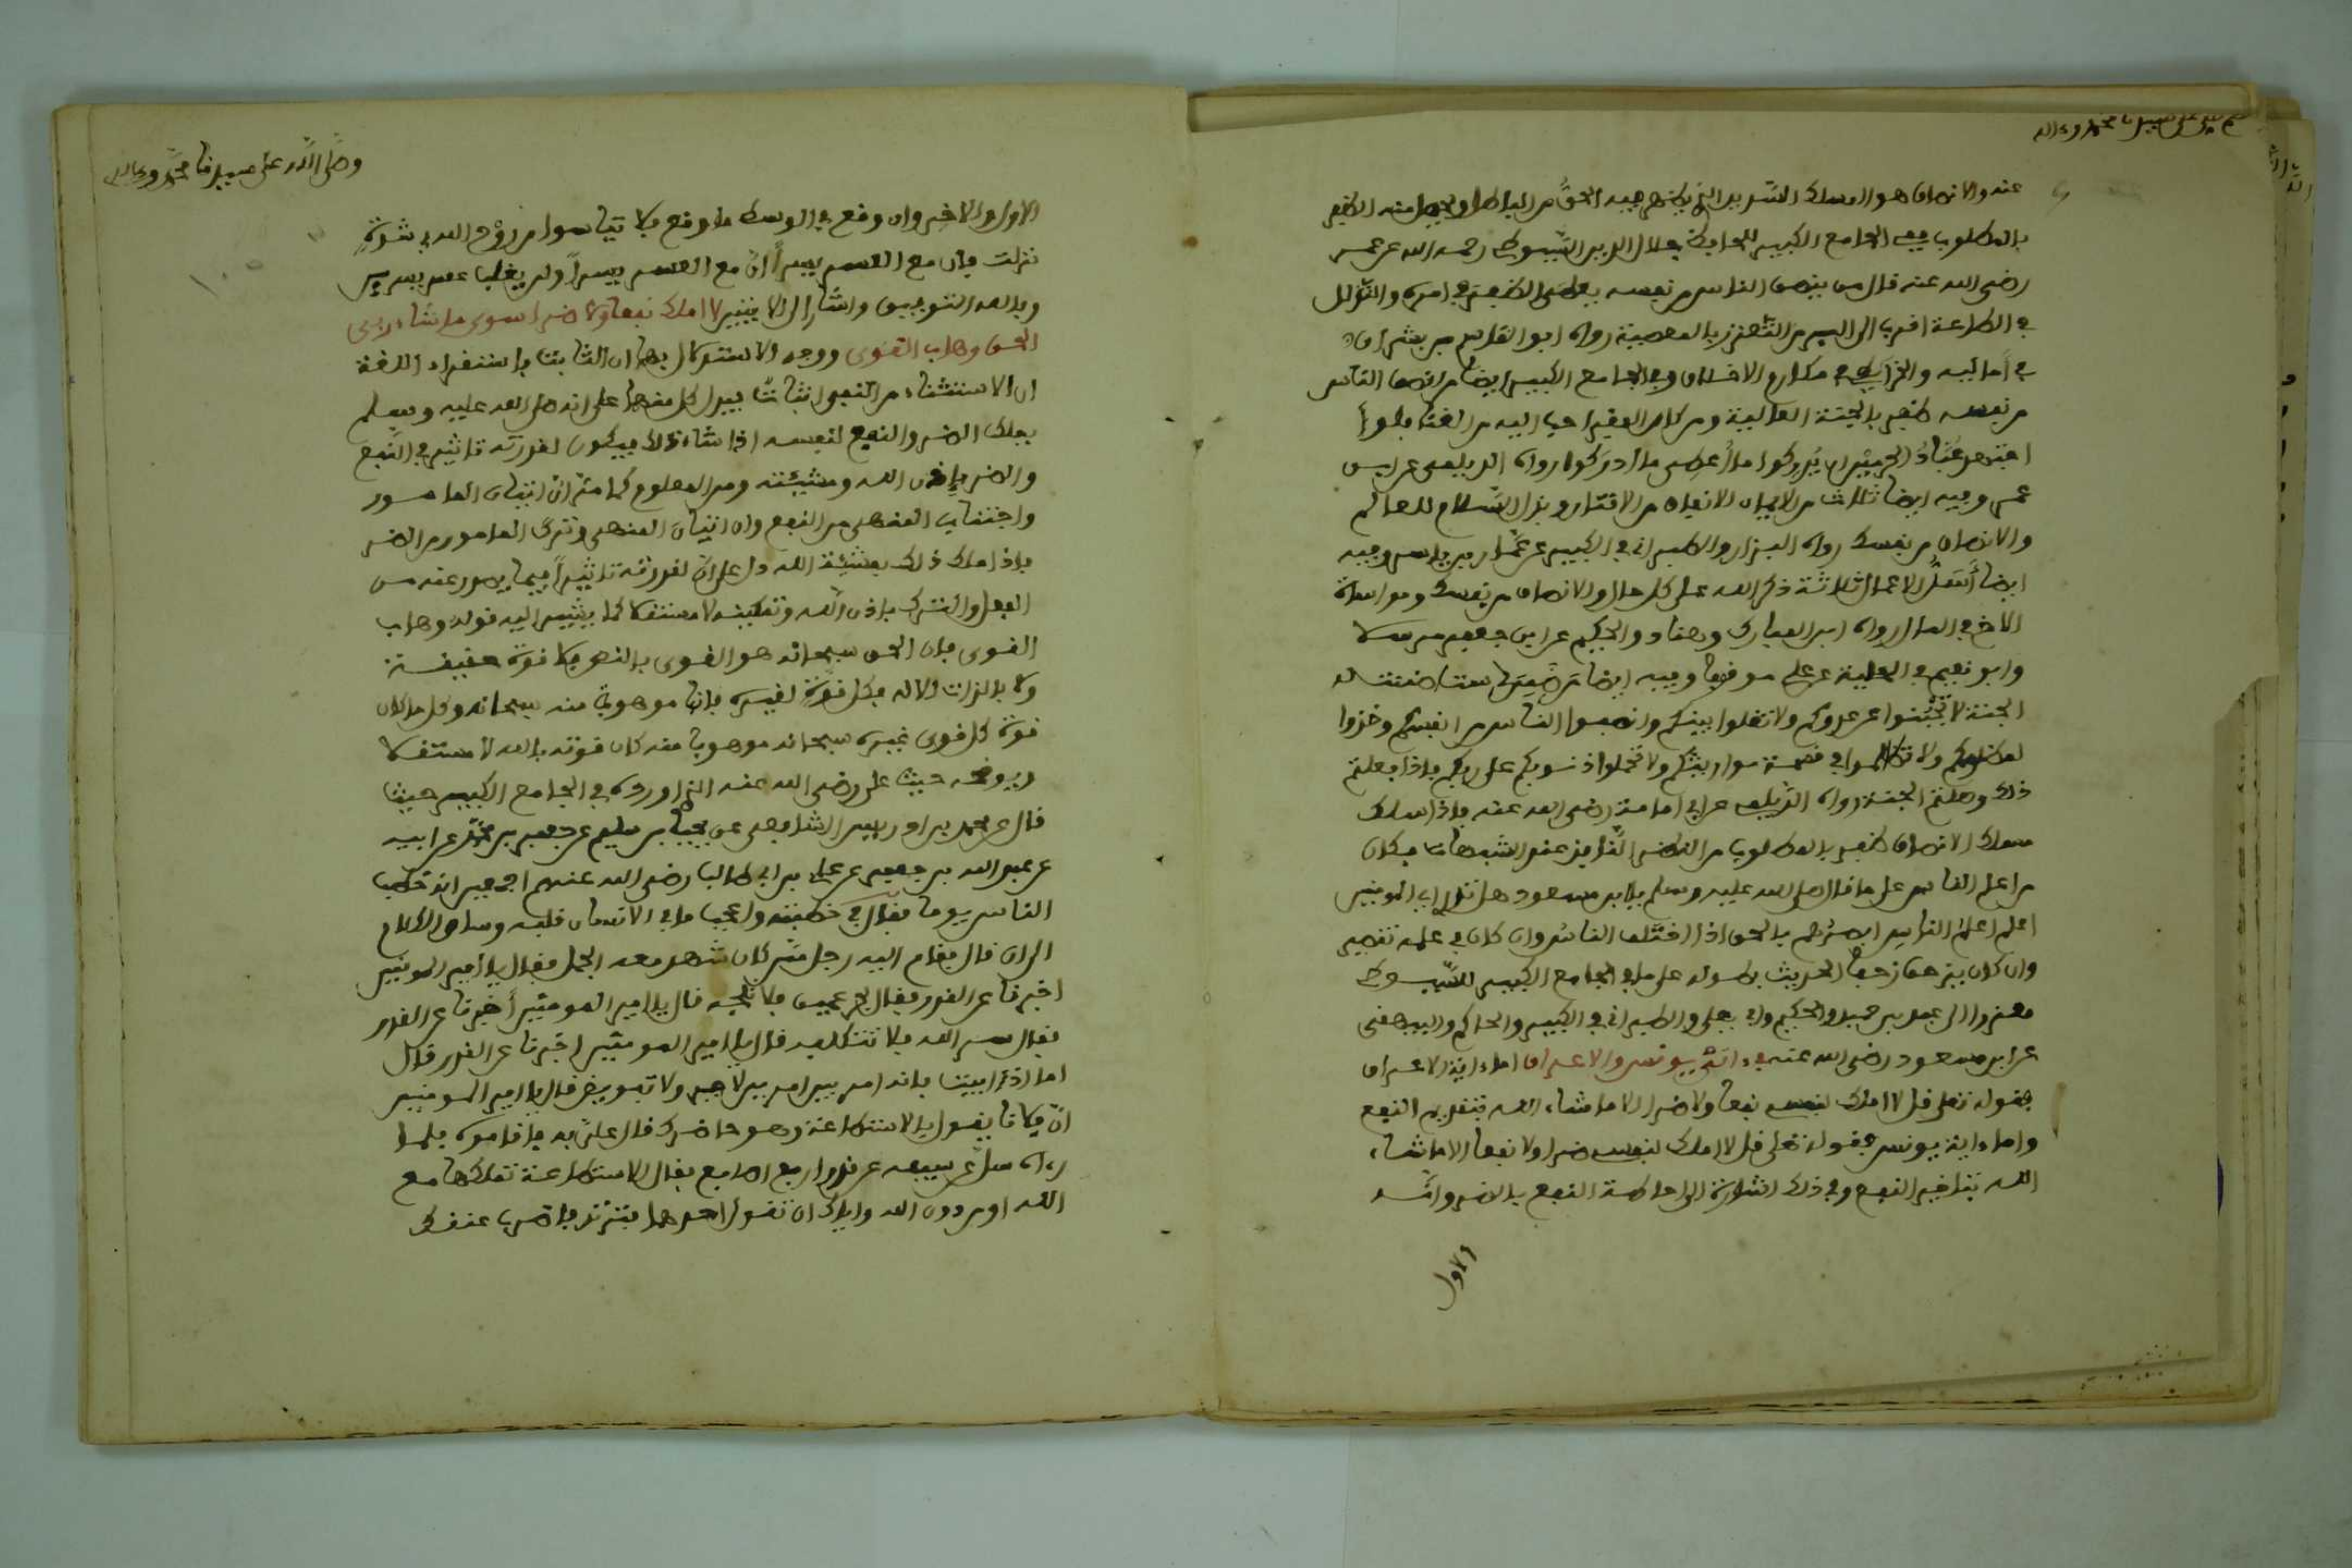 صلى الله على سيدنا محمد وعلى اله
عنه والانصاف هو المسلك السديد الذي يظهر فيه الحق من الباطل ويحصل منه الظفر
بالمطلوب ففي الجامع الكبير للحافظ جلال الدين السيوطي رحمه الله عن عمر
رضي الله عنه قال من ينصف الناس من نفسه يعطى الظفر في امره والتذلل
في الطاعة اقرب الى البر من التعزز بالمعصية رواه ابو القاسم بن بشران
في أماليه والخرائطي في مكارم الاخلاق وفي الجامع الكبير ايضا من انصف الناس
من نفسه ظفر بالجنة العالية ومن كان الفقر احب اليه من الغنا فلو
اجتهد عُبّادُ الحرمين ان يُدركوا ما أُعطي ما أدركوا رواه الديلمي عن ابن
عمر وفيه ايضا ثلاث من الايمان الانفاق من الاقتار وبذل السلام للعالم
والانصاف من نفسك رواه البزار والطبراني في الكبير عن عمار بن ياسر وفيه
ايضا أشد الاعمال ثلاثة ذكر الله على كل حال والانصاف من نفسك ومواساة
الاخ في المال رواه ابن المبارك وهناد والحكيم عن ابي جعفر مرسلا
وابو نعيم في الحلية عن علي موقوفا وفيه ايضا ستا ضمنت له
الجنة لا تجبنوا عن عدوكم ولا تغلوا بينكم وانصفوا الناس من انفسكم وخذوا
لمظلومكم ولا تظالموا في قسمة مواريثكم ولا تحملوا ذنوبكم على ربكم فاذا فعلتم
ذلك دخلتم الجنة رواه الديلمي عن ابي امامة رضي الله عنه فاذا سلك
مسلك الانصاف ظفر بالمطلوب من النظر النافذ عند الشبهات فكان
من اعلم الناس على ما قال صلى الله عليه وسلم يا بن مسعود هل تدري اي المومنين
اعلم اعلمُ الناس ابصرُهم بالحق اذا اختلف الناسُ وان كان في عمله تقصير
وان كان يزحف زحفا الحديث بطوله على ما في الجامع الكبير للسيوطي
معزوا الى عبد بن حميد والحكيم وابي يعلى والطبراني في الكبير والحاكم والبيهقي
عن ابن مسعود رضي الله عنه ءايتي يونس والاعراف اما ءاية الاعراف
فقوله تعلى قل لا املك لنفسي نفعا ولا ضرا الا ما شاء الله بتقديم النفع
واما ءاية يونس فقوله تعلى قل لا املك لنفسي ضرا ولا نفعا الا ما شاء
الله بتاخير النفع وفي ذلك اشارة الى احاطة النفع بالضر وانه
الاول
وصلى الله على سيدنا محمد وعلى اله
الاول والاخر وان وقع في الوسط ما وقع فلا تياسوا من رَوْح الله في شدة
نزلت فان مع العسر يسراً انّ مع العسر يسراً ولن يغلب عسر يسرين
وبالله التوفيق واشار الى الايتين لا املك نفعا ولا ضرا سوى ما شاء ربي
الحق وهاب القوى ووجه الاستدلال بهما ان الثابت باستقراء اللغة
ان الاستثناء من النفي اثبات فيدل كل منهما على انه صلى الله عليه وسلم
يملك الضر والنفع لنفسه اذا شاء ذلك فيكون لقدرته تاثير في النفع
والضر باذن الله ومشيئته ومن المعلوم كما مر انّ اتيان المامور
واجتناب المنهي من النفع وان اتيان المنهي وترك المامور من الضر
فاذا ملك ذلك بمشيئة الله دل على انّ لقدرته تاثيراً فيما يصدر عنه من
الفعل والترك باذن الله وتمكينه لا مستقلا كما يشير اليه قوله وهاب
القوى فان الحق سبحانه هو القوي بالنص فلا قوة حقيقة
ولا بالذات الا له فكل قوة لغيره فانها موهوبة منه سبحانه وكل ما كان
قوة كل قوي غيره سبحانه موهوبا منه كان قوته بالله لا مستقلا
ويوضحه حديث علي رضي الله عنه الذي اورده في الجامع الكبير حيث
قال عن محمد بن ادريس الشافعي عن يحيى بن سليم عن جعفر بن محمد عن ابيه
عن عبد الله بن جعفر عن علي بن ابي طالب رضي الله عنهم اجمعين انه خطب
الناس يوما فقال في خطبته واعجب ما في الانسان قلبه وساق الكلام
الى ان قال فقام اليه رجل ممن كان شهد معه الجمل فقال يا أمير المومنين
اخبرنا عن القدر فقال بحر عميق فلا تلجه قال يا امير المومنين أخبرنا عن القدر
فقال سر الله فلا تتكلفه قال يا امير المومنين اخبرنا عن القدر قال
اما اذ ابيت فانه امر بين امرين لا جبر ولا تفويض قال يا امير المومنين
انّ فلانا يقول بالاستطاعة وهو حاضرك فقال علي به فاقاموه فلما
رءاه سل سيفه قدر اربع اصابع فقال الاستطاعة تملكها مع
الله او من دون الله واياك ان تقول احدهما فترتد فاضرب عنقك